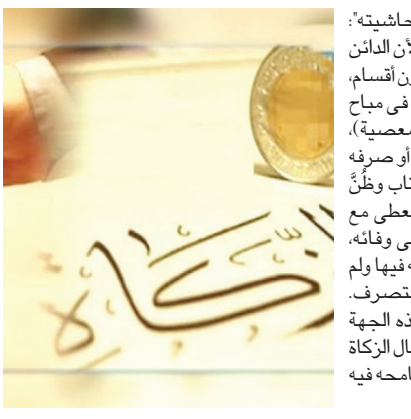 حاشيته":
لأن الدائن
ون أقسام،
فى مباح
معصية)،
أو صرفه
تاب وظُنَّ
عطى مع
ى وفائه،
ه فيها ولم
تصرف.
ذه الجهة
ال الزكاة
امحه فيه
الزكاة